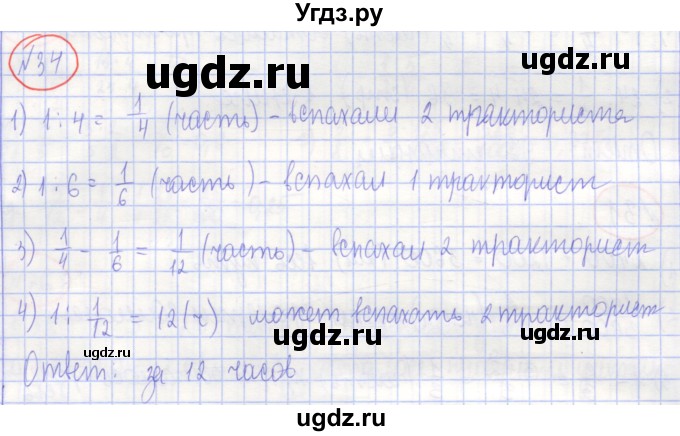 Угдз.ру
№34
ugdz.ru
1) 1 : 4 = 1/4 (часть) – вспахали 2 тракториста
ugdz.ru
2) 1 : 6 = 1/6 (часть) – вспахал 1 тракторист
3) 1/4 - 1/6 = 1/12 (часть) – вспахал 2 тракторист
ugdz.ru
4) 1 : 1/12 = 12 (ч) может вспахать 2 тракторист
ugdz.ru ugdz.ru
ugdz.ru
Ответ: за 12 часов
ugdz.ru